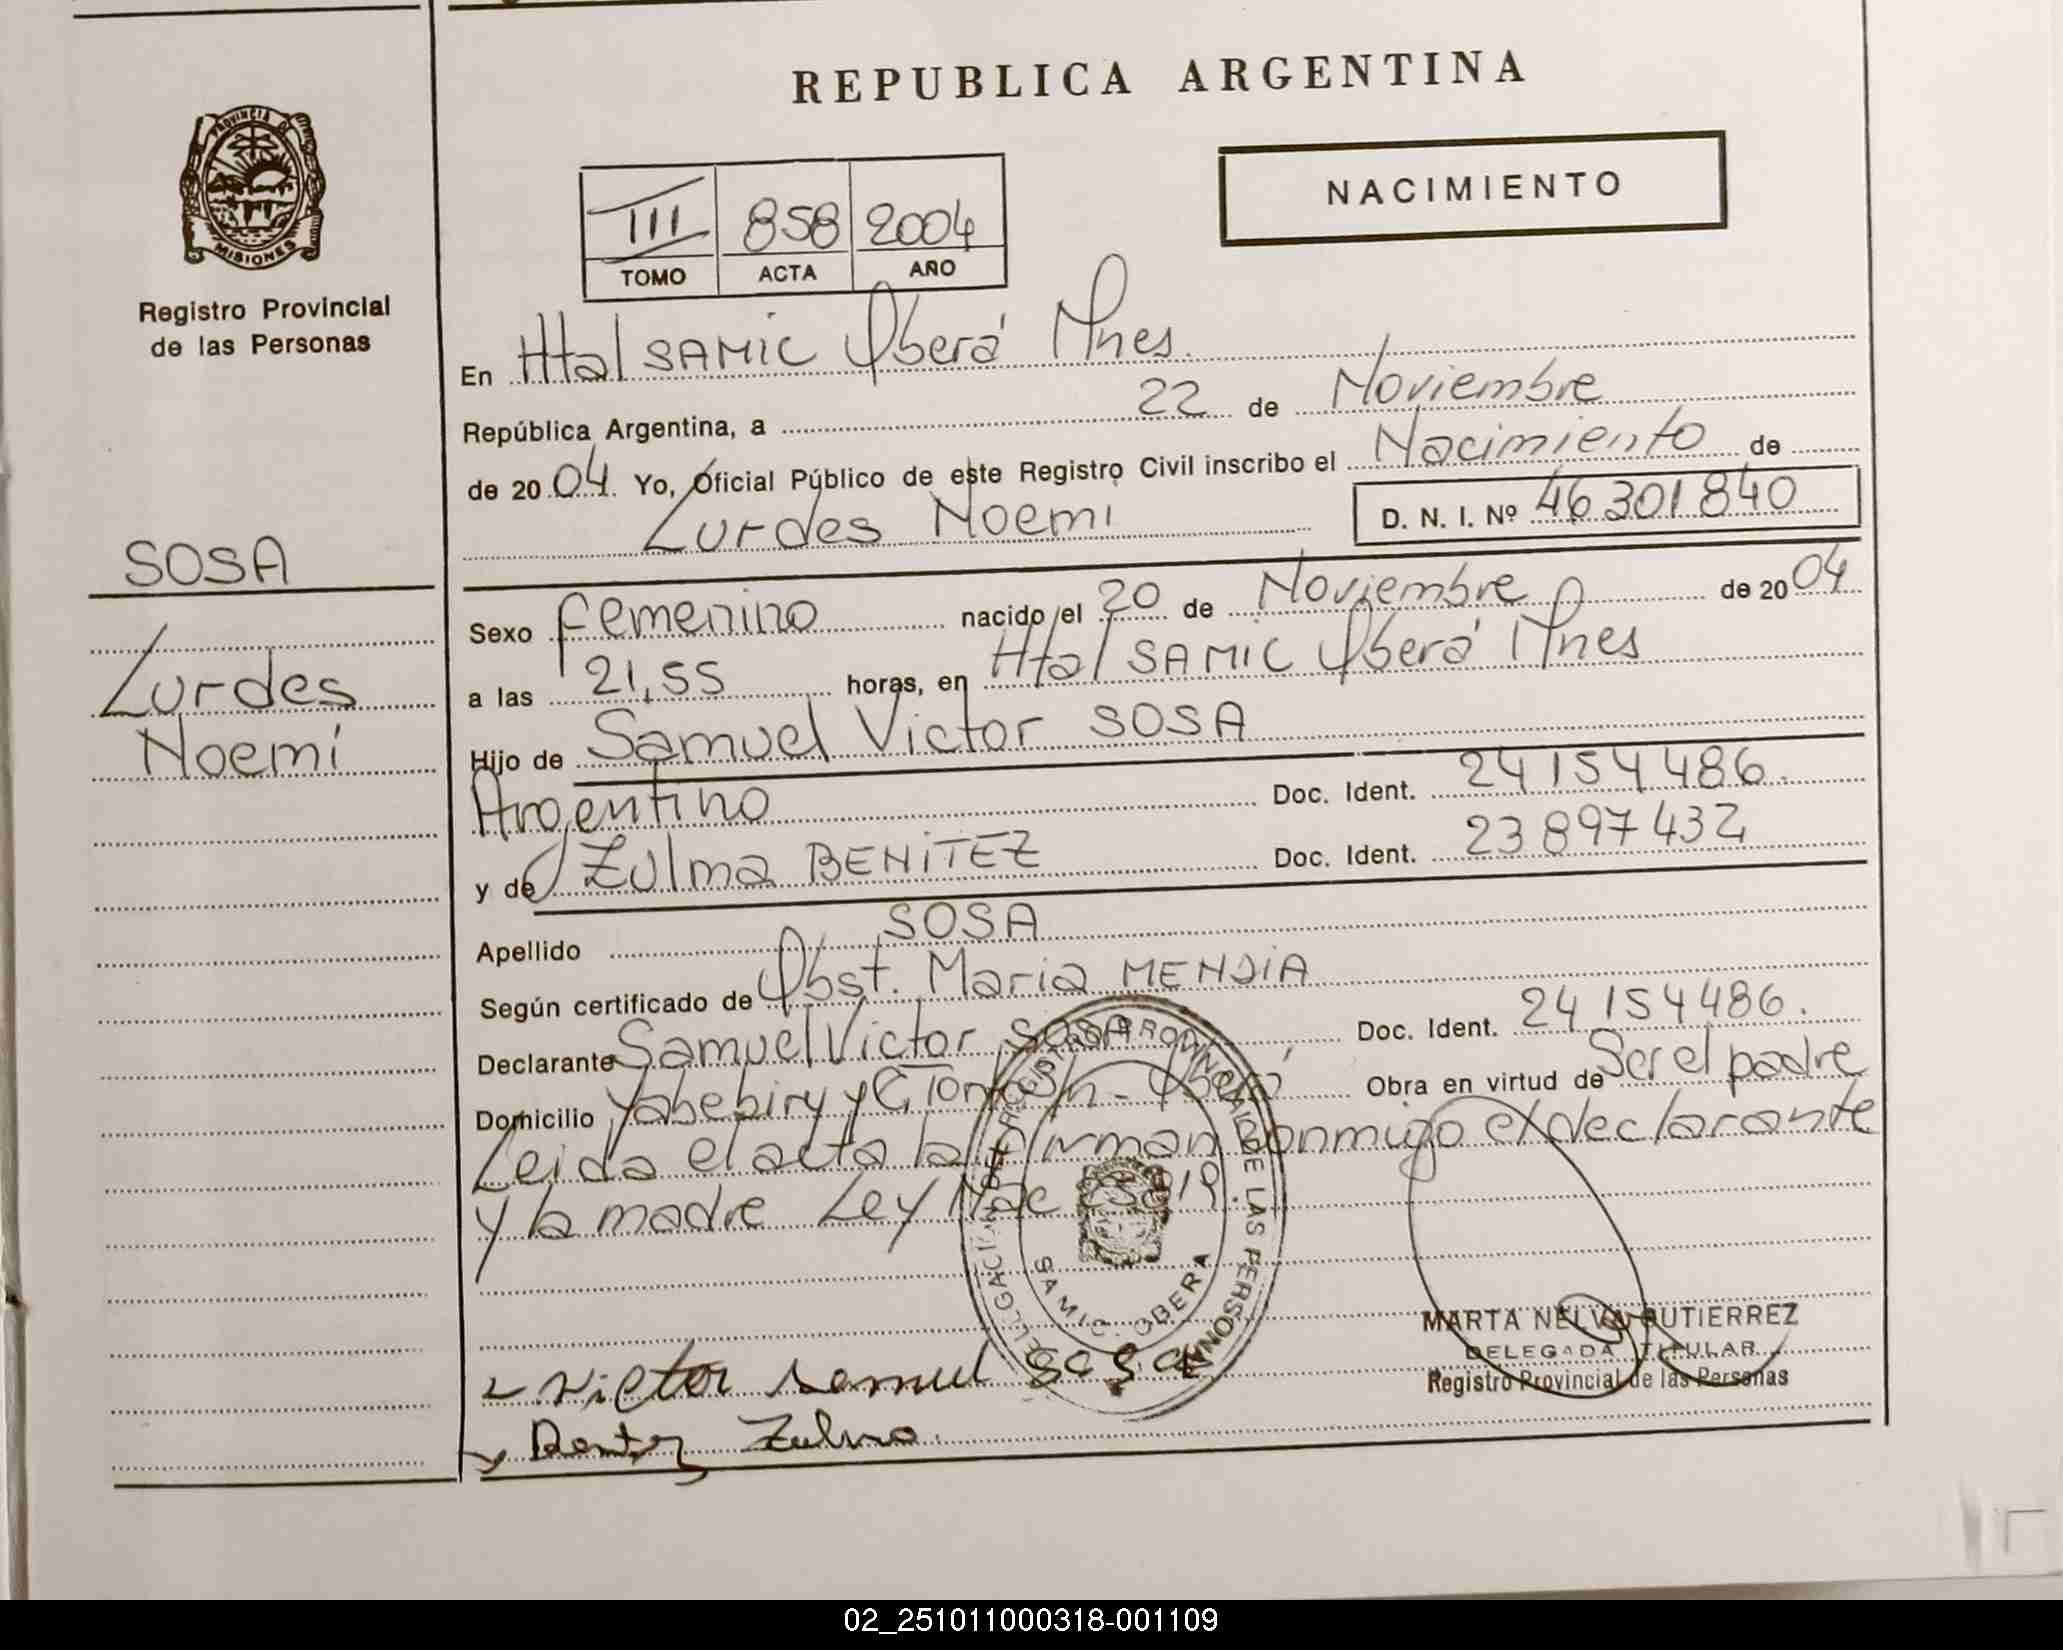 REPUBLICA ARGENTINA
PROVINCIA DE
MISIONES
Registro Provincial
de las Personas
III 858 2004
TOMO ACTA AÑO
NACIMIENTO
En Htal SAMIC Oberá Mnes.
República Argentina, a 22 de Noviembre
de 2004. Yo, Oficial Público de este Registro Civil inscribo el Nacimiento de
Lurdes Noemi D. N. I. Nº 46301840
SOSA
Lurdes
Noemí
Sexo femenino nacido el 20 de Noviembre de 2004
a las 21,55 horas, en Htal SAMIC Oberá Mnes
Hijo de Samuel Victor SOSA
Argentino Doc. Ident. 24154486.
y de Zulma BENITEZ Doc. Ident. 23897432
Apellido SOSA
Según certificado de Obst. Maria MENDIA
Declarante Samuel Victor SOSA Doc. Ident. 24154486.
Domicilio Yabebiry y C. S/n - Oberá Obra en virtud de Ser el padre
Leida el acta la firman conmigo el declarante
y la madre Ley
DELEGACION DEL REGISTRO PROVINCIAL DE LAS PERSONAS
SAMIC. OBERA
MARTA NELVA GUTIERREZ
DELEGADA TITULAR
Registro Provincial de las Personas
Victor Samuel Sosa
Zulma
02_251011000318-001109